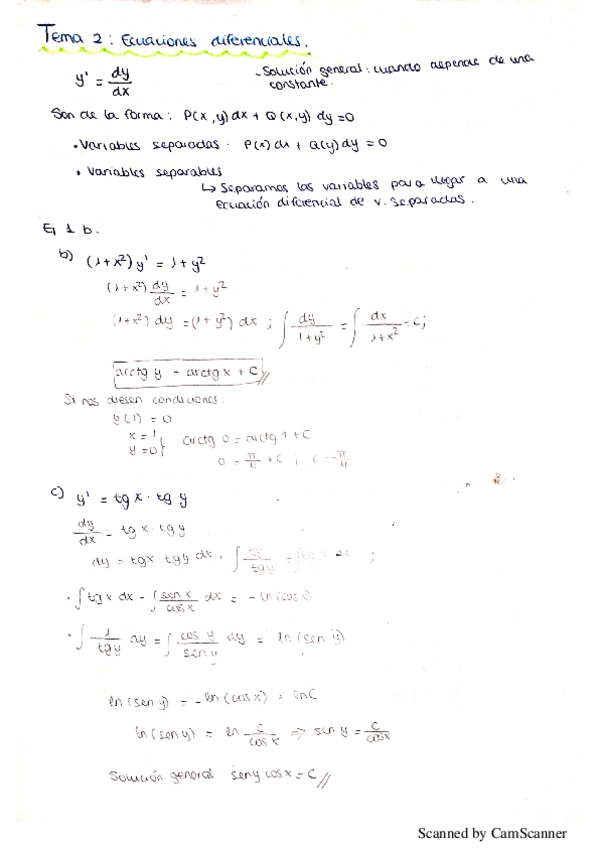 Tema 2: Ecuaciones diferenciales.
y' = dy/dx
- Solución general: cuando depende de una constante.
Son de la forma: P(x,y)dx + Q(x,y) dy = 0
• Variables separadas. P(x)dx + Q(y)dy = 0
• Variables separables
↳ Separamos las variables para llegar a una
ecuación diferencial de v. separadas.
Ej 1 b.
b) (1+x²) y' = 1+y²
(1+x²) dy/dx = 1+y²
(1+x²) dy = (1+y²) dx ; ∫ dy/(1+y²) = ∫ dx/(1+x²) = C;
arctg y = arctg x + C //
Si nos diesen condiciones:
y(1) = 0
x = 1
y = 0 } arctg 0 = arctg 1 + C
0 = π/4 + C ; C = -π/4
c) y' = tg x · tg y
dy/dx = tg x · tg y
dy = tgx tgy dx . ∫ dy/tgy = ∫ tgx dx ;
· ∫ tgx dx = ∫ sen x/cos x dx = - ln(cosx)
· ∫ 1/tgy dy = ∫ cos y/sen y dy = ln(sen y)
ln(sen y) = - ln(cosx) + lnC
ln(sen y) = ln C/cos x => sen y = C/cosx
Solución general seny cosx = C //
Scanned by CamScanner